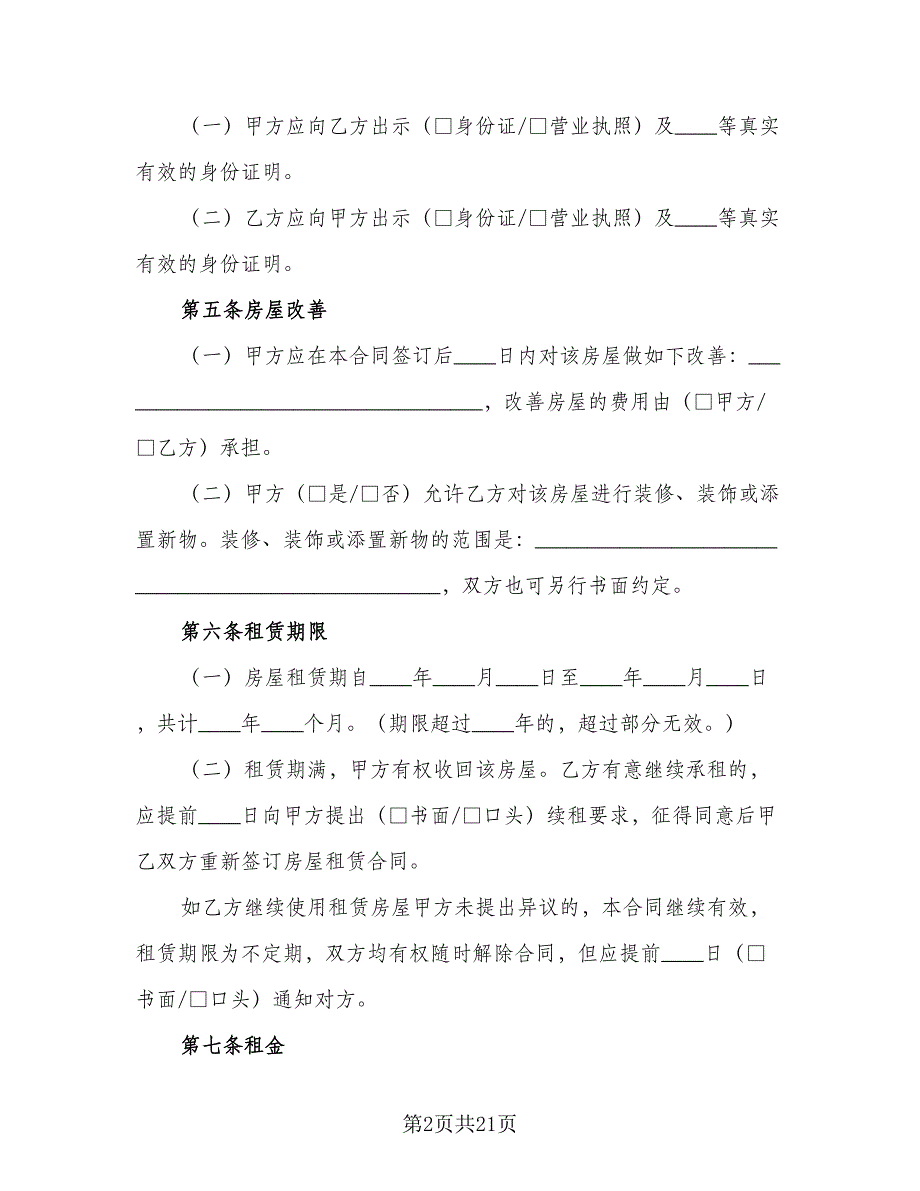 （一）甲方应向乙方出示（□身份证/□营业执照）及____等真实
有效的身份证明。
（二）乙方应向甲方出示（□身份证/□营业执照）及____等真实
有效的身份证明。
第五条房屋改善
（一）甲方应在本合同签订后____日内对该房屋做如下改善：___
_________________________________，改善房屋的费用由（□甲方/
□乙方）承担。
（二）甲方（□是/□否）允许乙方对该房屋进行装修、装饰或添
置新物。装修、装饰或添置新物的范围是：_______________________
_____________________________，双方也可另行书面约定。
第六条租赁期限
（一）房屋租赁期自____年____月____日至____年____月____日
，共计____年____个月。（期限超过____年的，超过部分无效。）
（二）租赁期满，甲方有权收回该房屋。乙方有意继续承租的，
应提前____日向甲方提出（□书面/□口头）续租要求，征得同意后甲
乙双方重新签订房屋租赁合同。
如乙方继续使用租赁房屋甲方未提出异议的，本合同继续有效，
租赁期限为不定期，双方均有权随时解除合同，但应提前____日（□
书面/□口头）通知对方。
第七条租金
第2页共21页